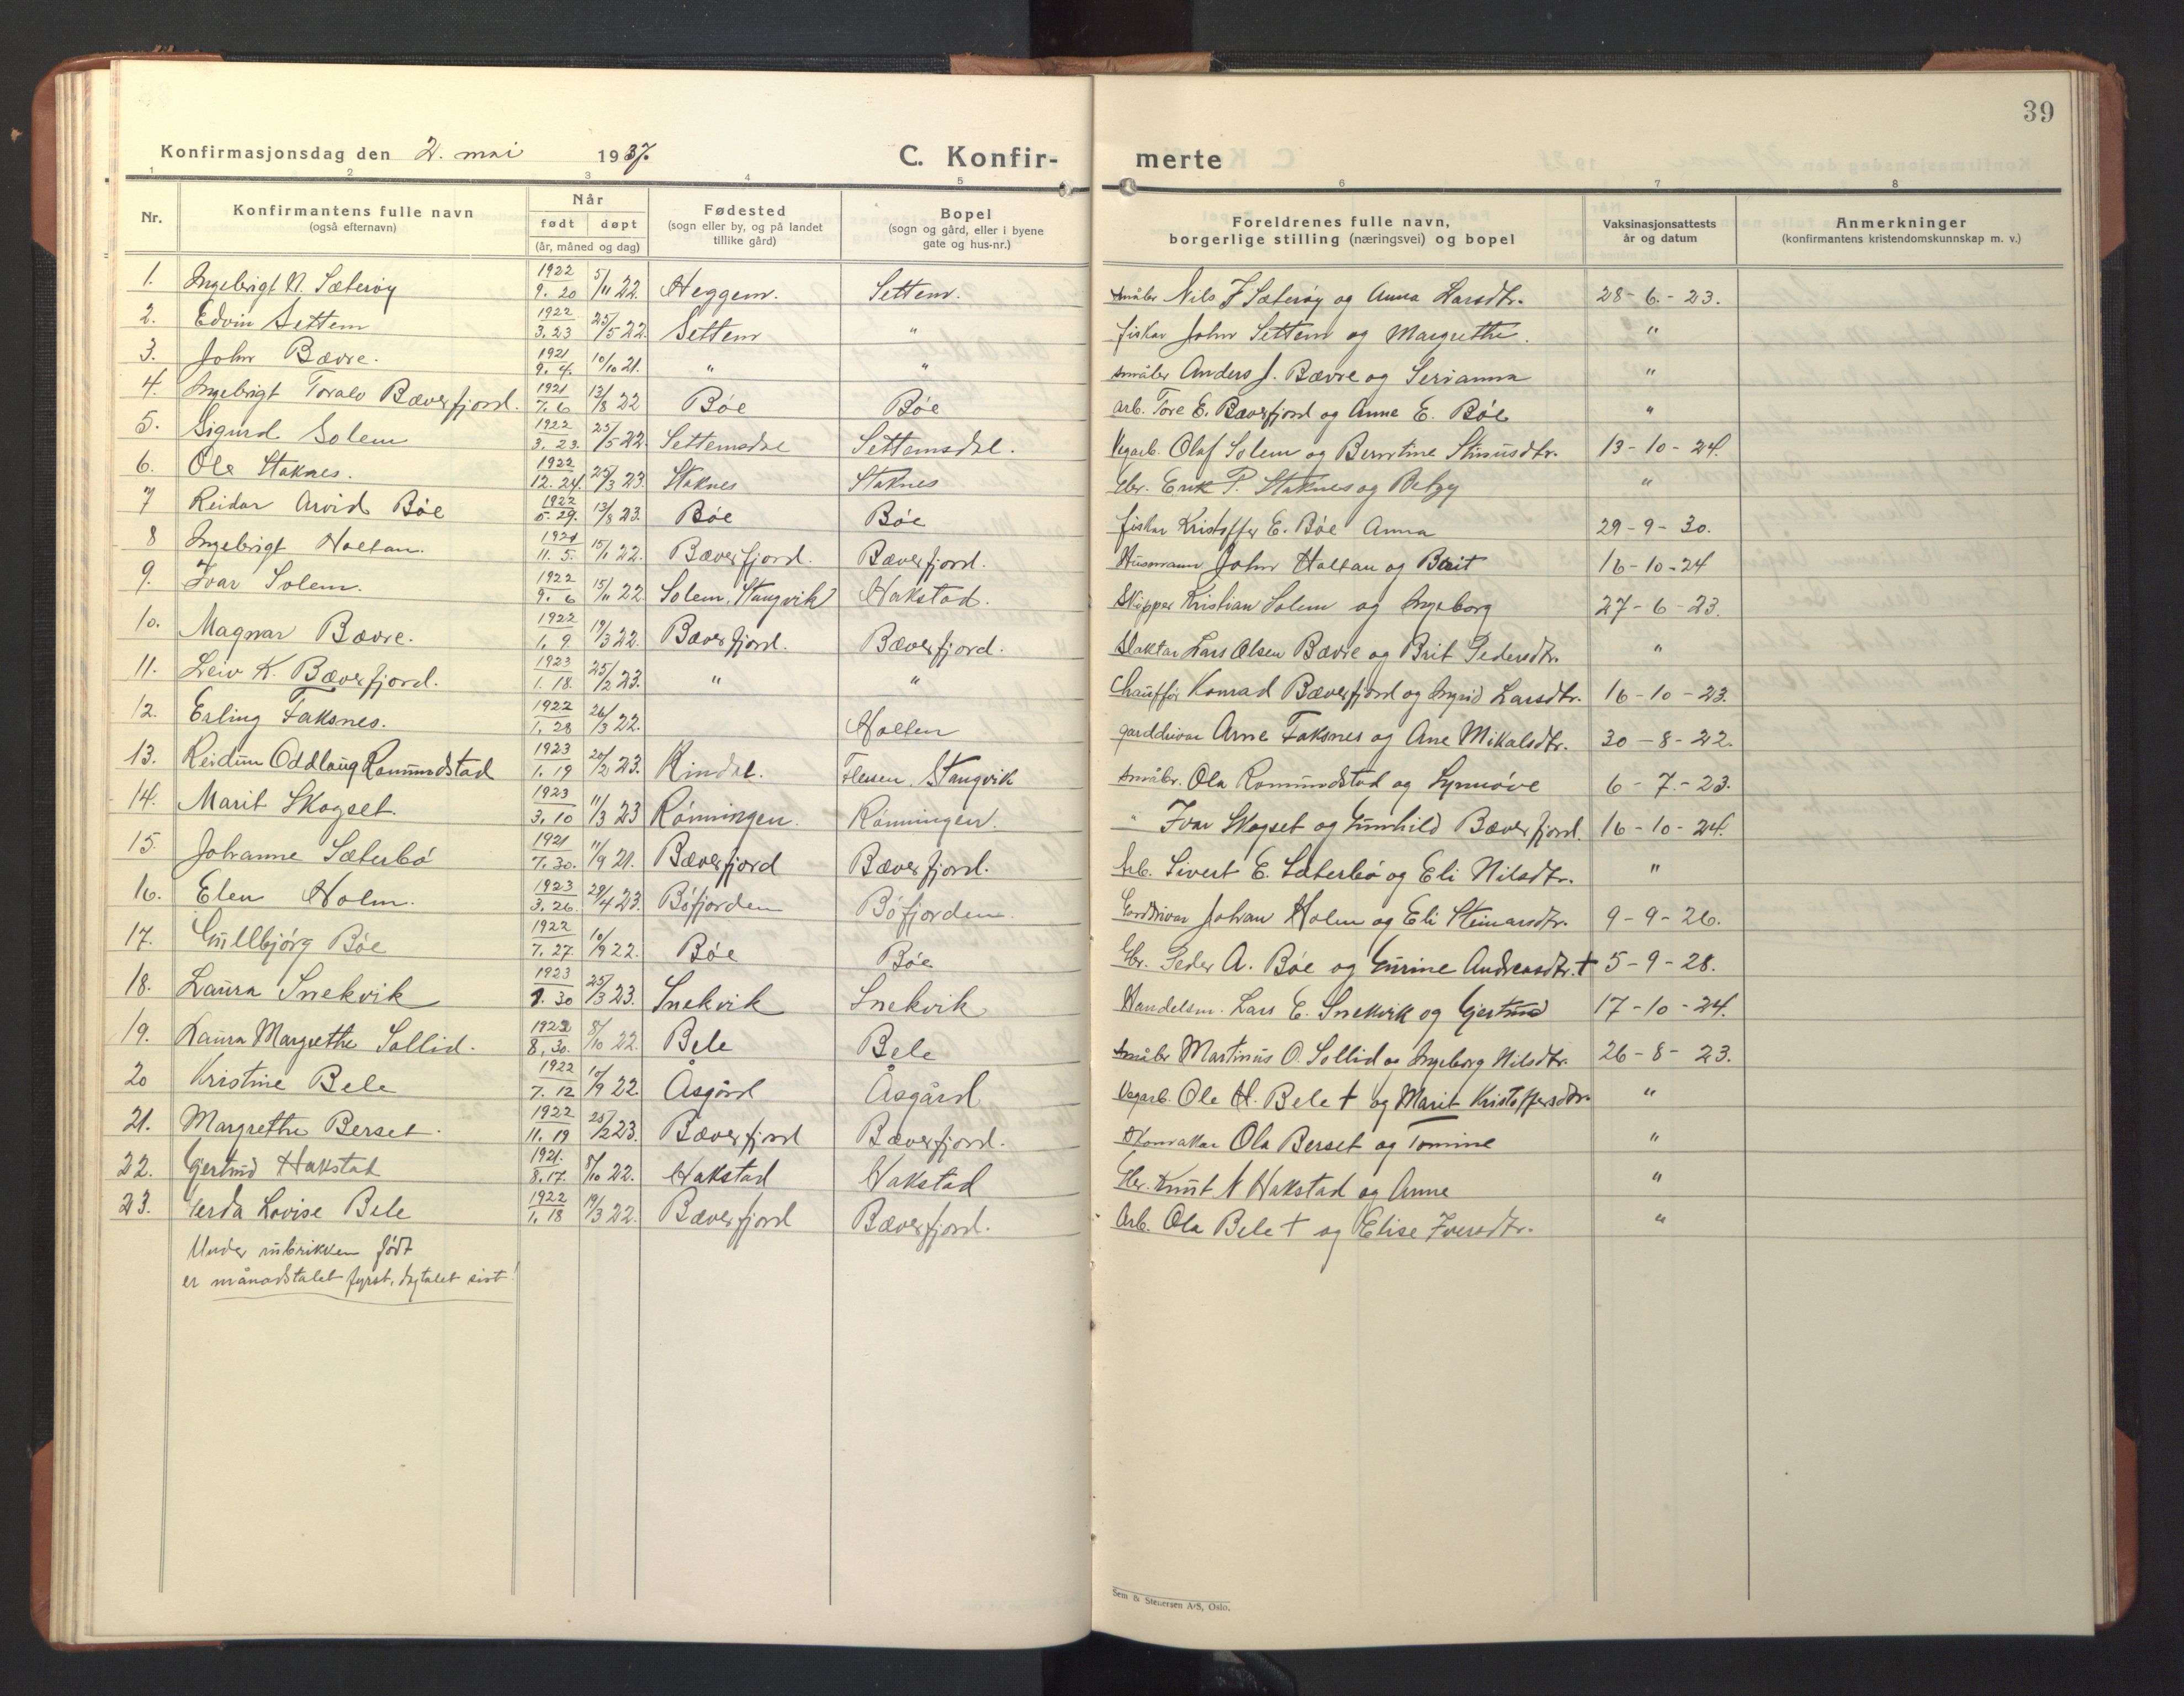 39
Konfirmasjonsdag den 2. mai 1937. C. Konfir- merte
1 2 3 4 5 6 7 8
Nr. Konfirmantens fulle navn (også efternavn) Når født døpt (år, måned og dag) Fødested (sogn eller by, og på landet tillike gård) Bopel (sogn og gård, eller i byene gate og hus-nr.) Foreldrenes fulle navn, borgerlige stilling (næringsvei) og bopel Vaksinasjonsattests år og datum Anmerkninger (konfirmantens kristendomskunnskap m. v.)
1. Ingebrigt N. Sæterøy 1922 9. 20 5/11 22. Heggem. Settem. småbr Nils J Sæterøy og Anna Larsdtr. 28-6.-23.
2. Edvin Settem 1922 3. 23 25/5 22. Settem " fiskar John Settem og Margrethe. "
3. John Bævre. 1921 9. 4. 10/10 21. " " småbr Anders J. Bævre og Serianna "
4. Ingebrigt Toralv Bæverfjord. 1921 7. 6 13/8 22 Bøe Bøe arb. Tore E. Bæverfjord og Anne E. Bøe "
5. Sigurd Solem 1922 3. 23. 25/5 22. Settemsdal Settemsdal. Vegarb. Olaf Solem og Berntine Stinusdtr. 13-10-24.
6. Ole Staknes. 1922 12. 24. 25/3 23. Staknes Staknes Gbr. Erik P. Staknes og Betzy "
7 Reidar Arvid Bøe 1922 5. 29. 13/8 23. Bøe Bøe fiskar Kristoffer E. Bøe Anna 29-9-30.
8 Ingebrigt Holtan. 1921 11. 5. 15/1 22. Bæverfjord. Bæverfjord. Husmann John Haltan og Brit 16-10-24
9. Ivar Solem. 1922 9. 6 15/11 22. Solem, Stangvik Hakstad. Skipper Kristian Solem og Ingeborg 27-6-23.
10. Magnar Bævre. 1922 1. 9 19/3 22. Bæverfjord. Bæverfjord. Slaktar Lars Olsen Bævre og Brit Pedersdtr. "
11. Leiv K. Bæverfjord. 1923 1. 18. 25/2 23. " " Chauffør Konrad Bæverfjord og Ingrid Larsdtr. 16-10-23.
12. Erling Faksnes. 1922 1. 28 26/3 22. Holten garddrivar Arne Faksnes og Ane Mikalsdtr. 30-8-22.
13. Reidun Oddlaug Romundstad 1923 1. 19 20/2 23. Rindal. Flenen, Stangvik småbr. Ola Romundstad og Synnøve 6-7.-23.
14. Marit Skogset. 1923 3. 10 11/3 23 Rønningen. Rønningen. " Ivar Skogset og Gunhild Bæverfjord. 16-10-24.
15. Johanne Sæterbø 1921 7. 30. 11/9 21. Bæverfjord Bæverfjord. Arb. Sivert E. Sæterbø og Eli Nilsdtr. "
16. Elen Holm. 1923 3. 26. 29/4 23. Bøfjorden Bøfjorden. Garddrivar Johan Holm og Eli Steinarsdtr. 9-9-26.
17. Gullbjørg Bøe 1922 7. 27. 10/9 22. Bøe Bøe Gbr. Peder A. Bøe og Gurine Andreasdtr. † 5-9-28.
18. Laura Snekvik 1923 1. 30 25/3 23. Snekvik Snekvik Handelsm. Lars E. Snekvik og Gjertrud 17-10-24.
19. Laura Margrethe Sollid. 1922 8. 30. 8/10 22. Bele Bele småbr Martinus O. Sollid og Ingeborg Nilsdtr. 26-8-23.
20 Kristine Bele 1922 7. 12 10/9 22. Åsgård Åsgård Vegarb. Ole H. Bele † og Marit Kristoffersdtr. "
21. Margrethe Berset. 1922 11. 19 25/2 23. Bæverfjord Bæverfjord. Skomakar Ola Berset og Tomine "
22. Gjertrud Hakstad 1921. 8. 17. 8/10 22. Hakstad Hakstad Gbr. Knut N Hakstad og Anne "
23. Gerda Lovise Bele 1922 1. 18 19/3 22. Bæverfjord Bæverfjord. Arb. Ola Bele † og Elise Iversdtr. "
Under rubrikken født
er månadstalet fyrst, dagtalet sist!
Sem & Stenersen A/S, Oslo.